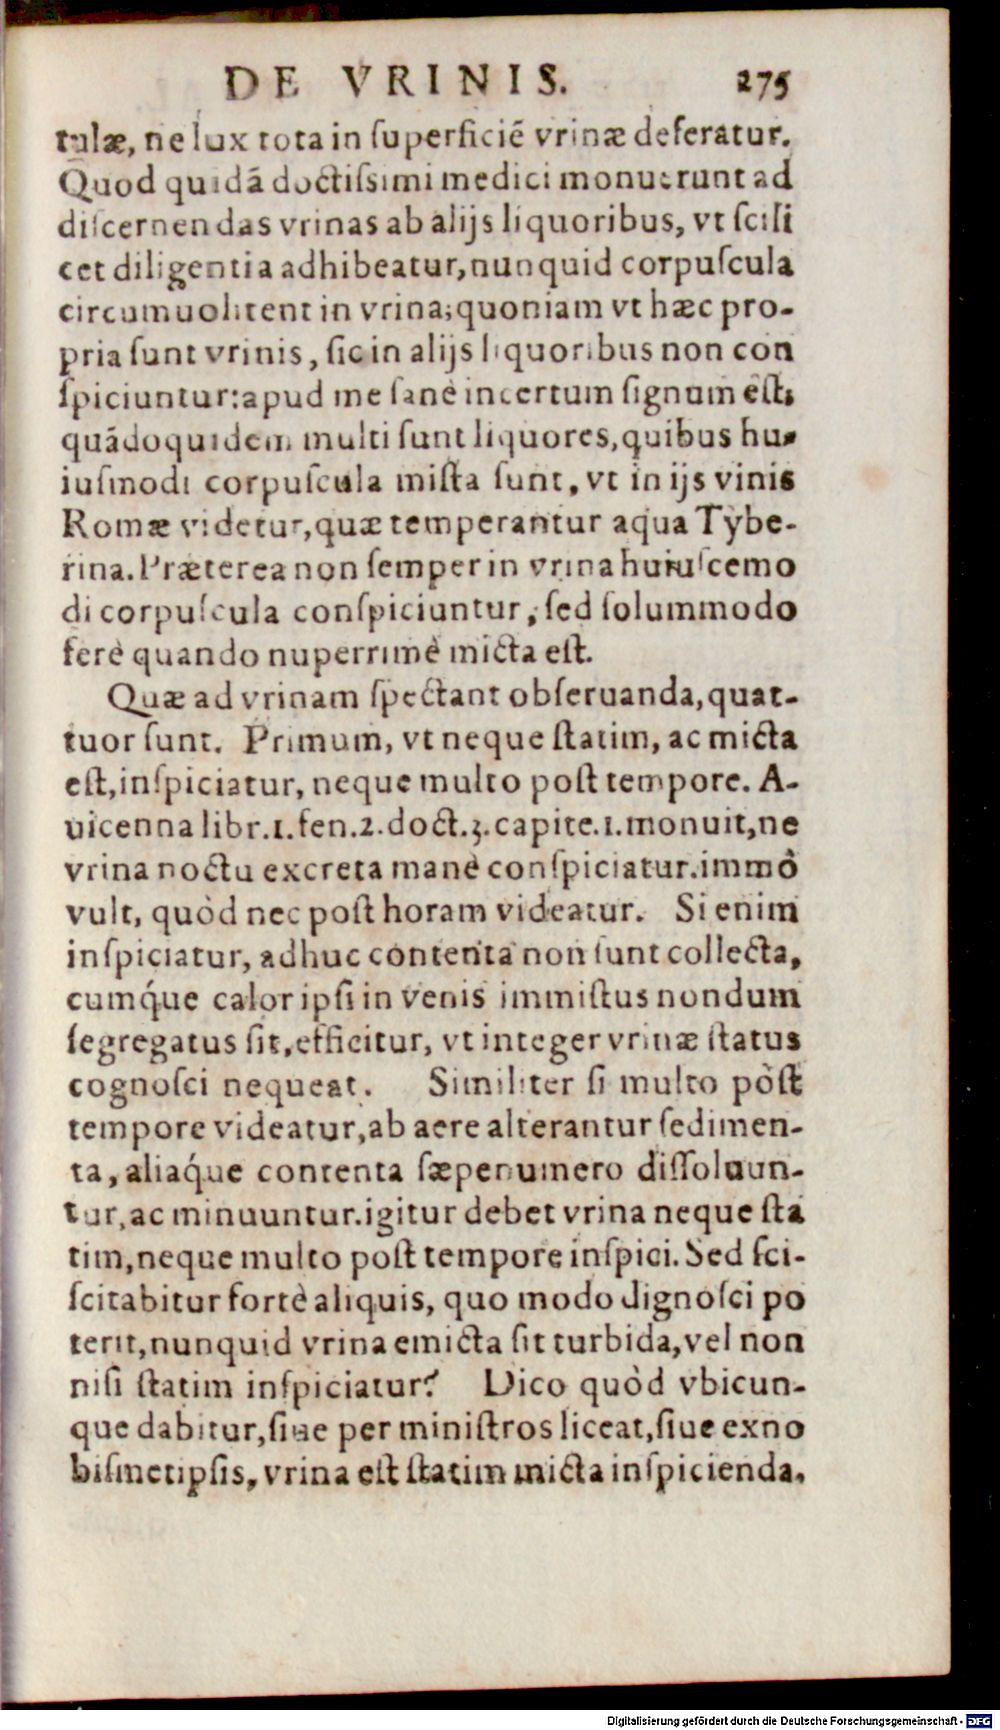 DE VRINIS. 275
tulæ, ne lux tota in ſuperficiē vrinæ deferatur.
Quod quidā doctiſsimi medici monuerunt ad
diſcernendas vrinas ab alijs liquoribus, vt ſcili
cet diligentia adhibeatur, nunquid corpuſcula
circumuolitent in vrina; quoniam vt hæc pro-
pria ſunt vrinis, ſic in alijs liquoribus non con
ſpiciuntur: apud me ſanè incertum ſignum est;
quādoquidem multi ſunt liquores, quibus hu-
iuſmodi corpuſcula miſta ſunt, vt in ijs vinis
Romæ videtur, quæ temperantur aqua Tybe-
rina. Præterea non ſemper in vrina huiuſcemo
di corpuſcula conſpiciuntur, ſed ſolummodo
ferè quando nuperrimè micta eſt.
Quæ ad vrinam ſpectant obſeruanda, quat-
tuor ſunt. Primum, vt neque ſtatim, ac micta
eſt, inſpiciatur, neque multo poſt tempore. A-
uicenna libr.1.fen.2.doct.3.capite.1.monuit, ne
vrina noctu excreta manè conſpiciatur. immò
vult, quòd nec poſt horam videatur. Si enim
inſpiciatur, adhuc contenta non ſunt collecta,
cumq́ue calor ipſi in venis immiſtus nondum
ſegregatus ſit, efficitur, vt integer vrinæ ſtatus
cognoſci nequeat. Similiter ſi multo pòſt
tempore videatur, ab aere alterantur ſedimen-
ta, aliaq́ue contenta ſæpenumero diſſoluun-
tur, ac minuuntur. igitur debet vrina neque ſta
tim, neque multo poſt tempore inſpici. Sed ſci-
ſcitabitur fortè aliquis, quo modo dignoſci po
terit, nunquid vrina emicta ſit turbida, vel non
niſi ſtatim inſpiciatur? Dico quòd vbicun-
que dabitur, ſiue per miniſtros liceat, ſiue ex no
biſmetipſis, vrina eſt ſtatim micta inſpicienda.
Digitalisierung gefördert durch die Deutsche Forschungsgemeinschaft - DFG